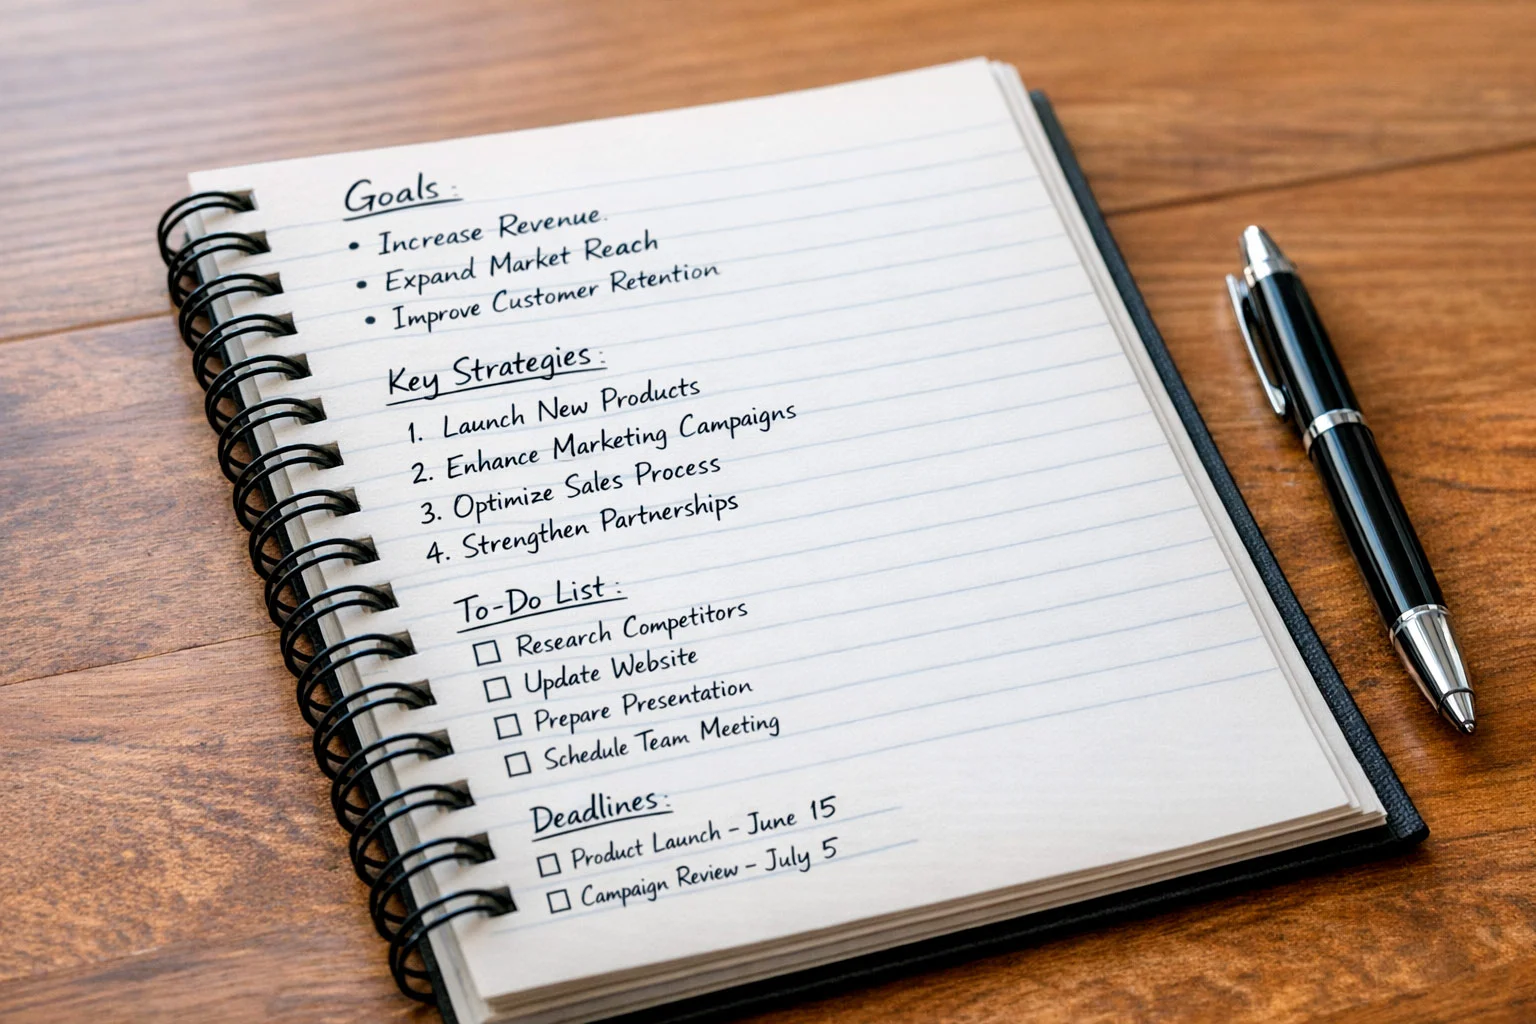 Goals:
• Increase Revenue.
• Expand Market Reach
• Improve Customer Retention
Key Strategies:
1. Launch New Products
2. Enhance Marketing Campaigns
3. Optimize Sales Process
4. Strengthen Partnerships
To-Do List:
☐ Research Competitors
☐ Update Website
☐ Prepare Presentation
☐ Schedule Team Meeting
Deadlines:
☐ Product Launch - June 15
☐ Campaign Review - July 5